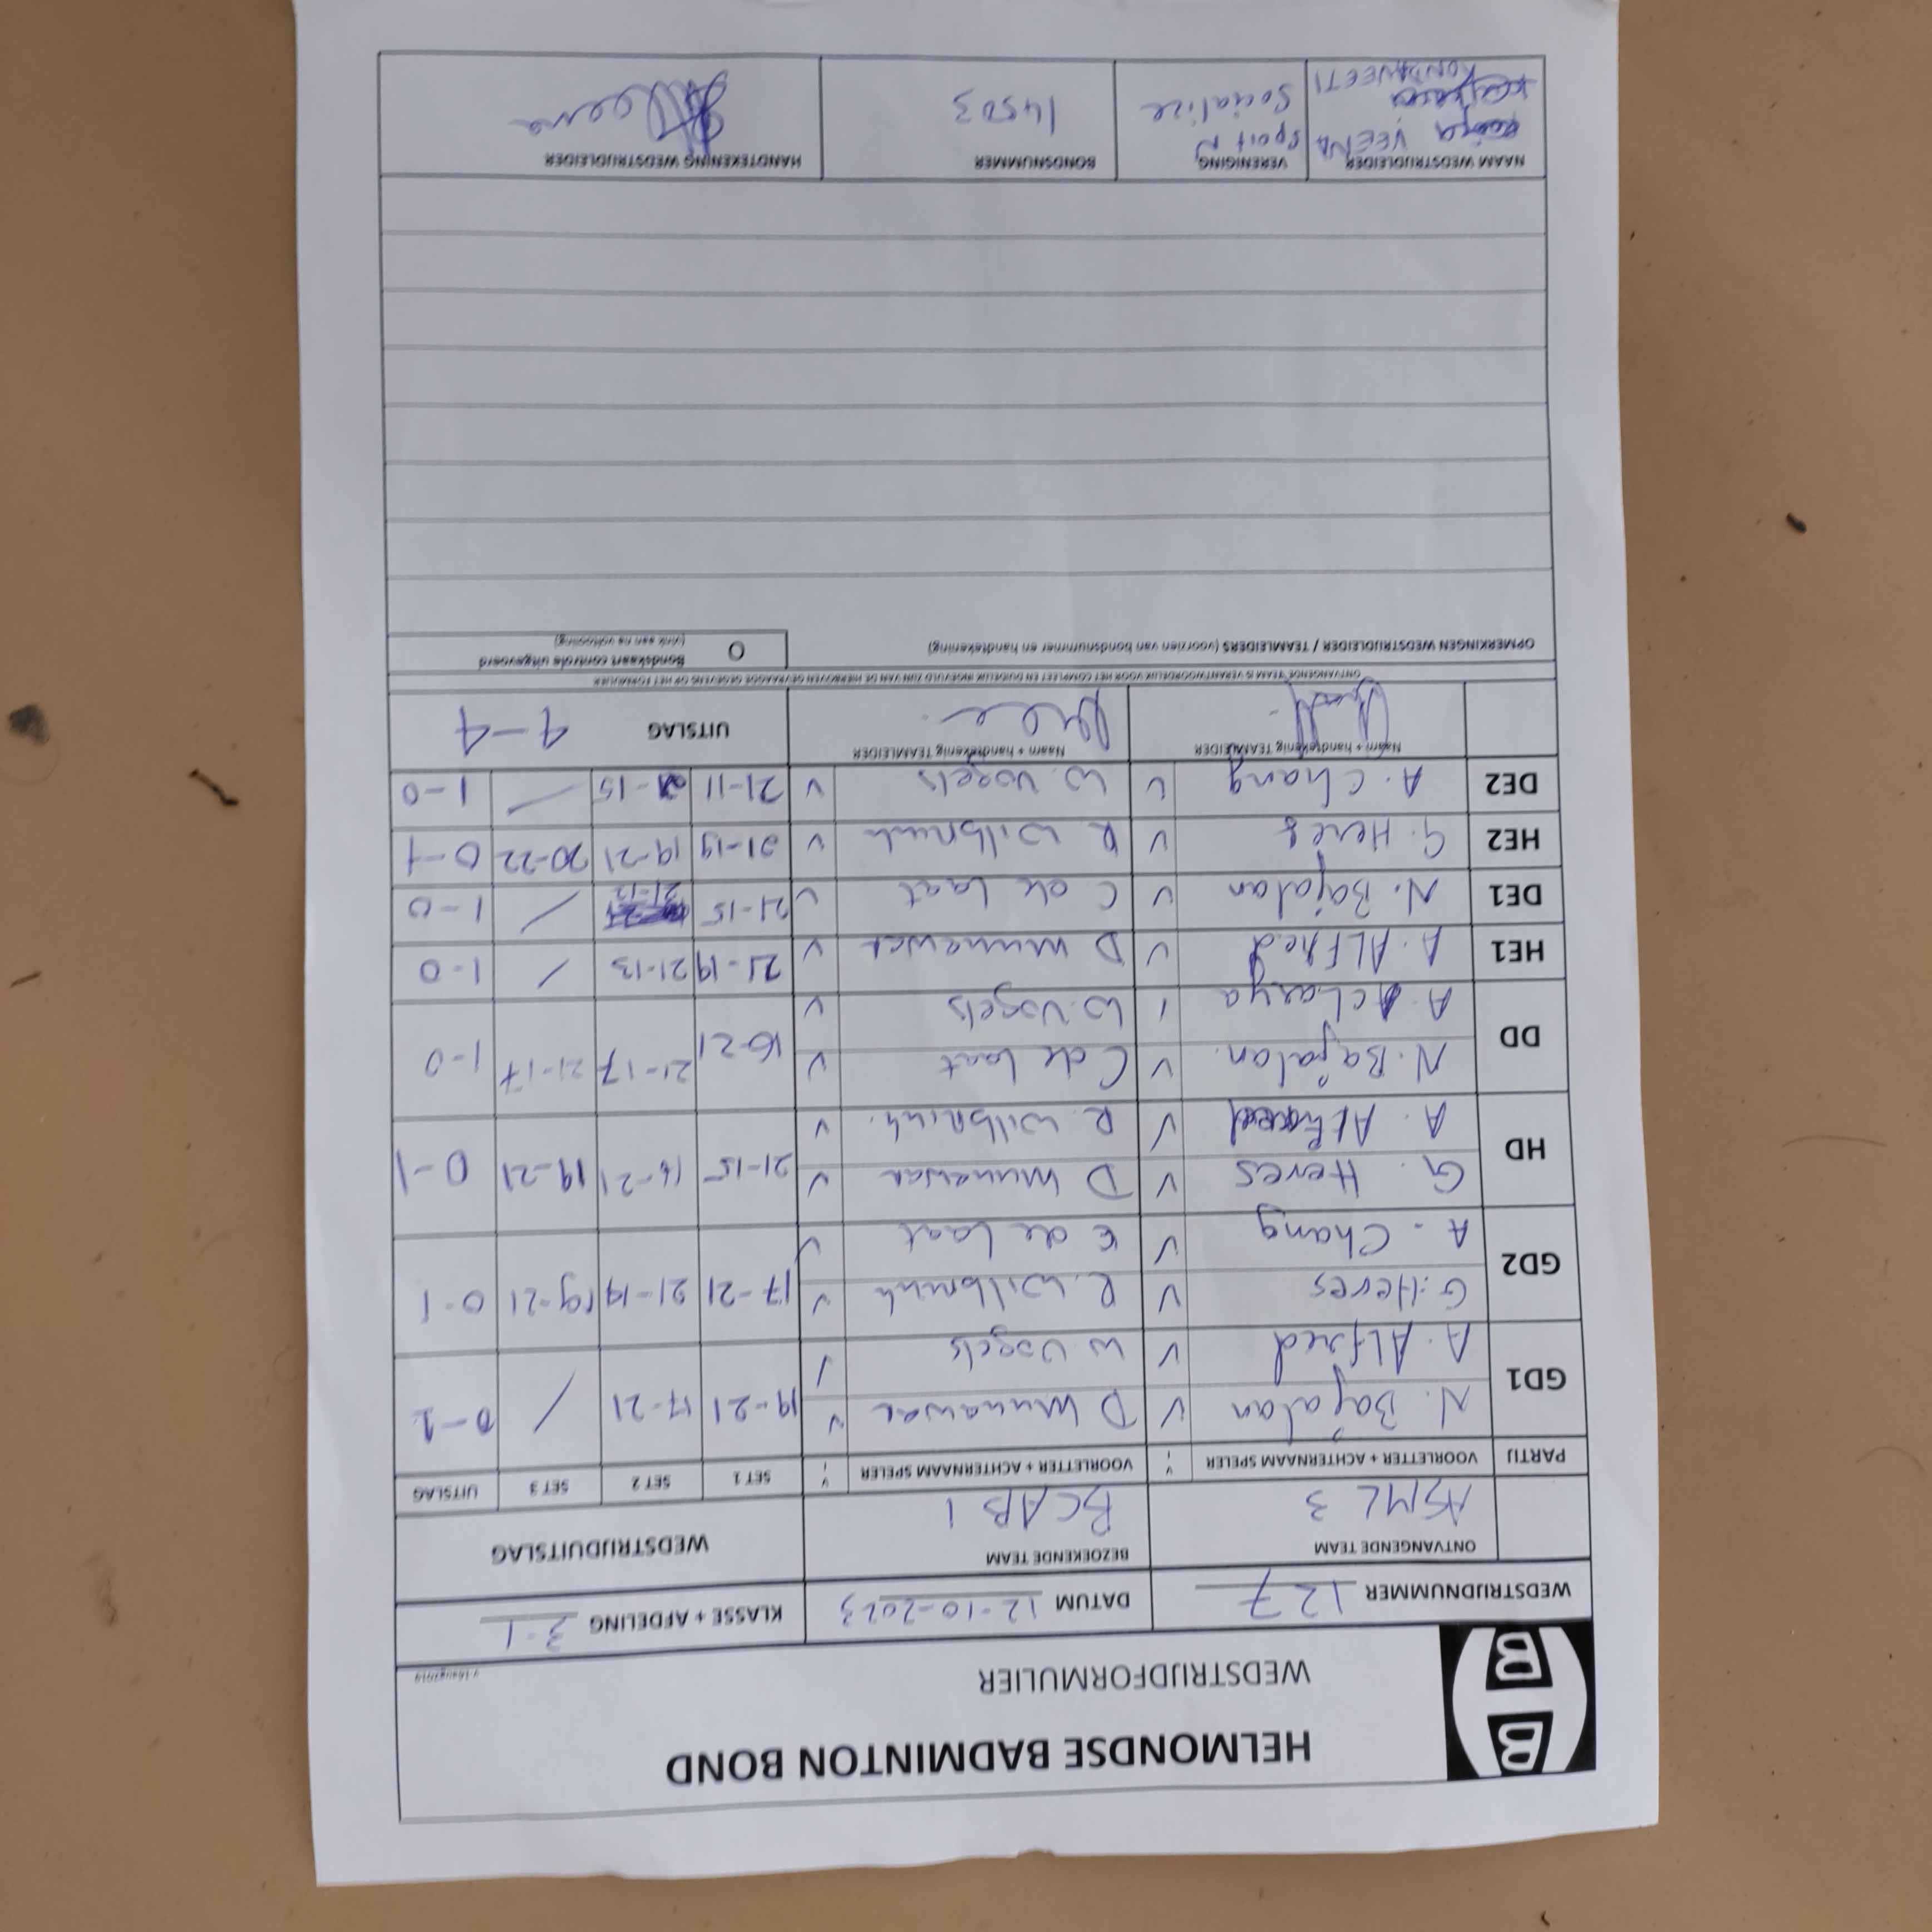 HELMONDSE BADMINTON BOND
WEDSTRIJDFORMULIER
WEDSTRIJDNUMMER 127 DATUM 12-10-2023 KLASSE + AFDELING 3-1
ONTVANGENDE TEAM BEZOEKENDE TEAM WEDSTRIJDUITSLAG
ASML 3 BCAB 1
PARTIJ VOORLETTER + ACHTERNAAM SPELER V VOORLETTER + ACHTERNAAM SPELER V SET 1 SET 2 SET 3 UITSLAG
GD1 N. Bajalan V D Munawar V 19-21 17-21 / 0-1
A. Alfred V W Vogels /
GD2 G. Heres V R. Wilbrink V 17-21 21-19 19-21 0-1
A. Chang V C de Laat V
HD G. Heres V D Munawar V 21-15 16-21 19-21 0-1
A. Alfred V R. Wilbrink V
DD N. Bajalan. V C de Laat V 16-21 21-17 21-17 1-0
A. Acharya / W. Vogels V
HE1 A. ALFred V D Munawar V 21-19 21-13 / 1-0
DE1 N. Bajalan V C de Laat V 21-15 21-12 / 1-0
HE2 G. Heres V R Wilbrink V 21-19 19-21 20-22 0-1
DE2 A. Chang V W. Vogels V 21-11 21-15 / 1-0
Naam + handtekenig TEAMLEIDER Naam + handtekenig TEAMLEIDER UITSLAG 4-4
ONTVANGENDE TEAM IS VERANTWOORDELIJK VOOR HET COMPLEET EN DUIDELIJK INGEVULD ZIJN VAN DE HIERBOVEN GEVRAAGDE GEGEVENS OP HET FORMULIER
OPMERKINGEN WEDSTRIJDLEIDER / TEAMLEIDERS (voorzien van bondsnummer en handtekening) O Bondskaart controle uitgevoerd
(vink aan na voltooiing)
NAAM WEDSTRIJDLEIDER VERENIGING BONDSNUMMER HANDTEKENING WEDSTRIJDLEIDER
VEENA Sport N 14503
KONDAVEETI Socialize